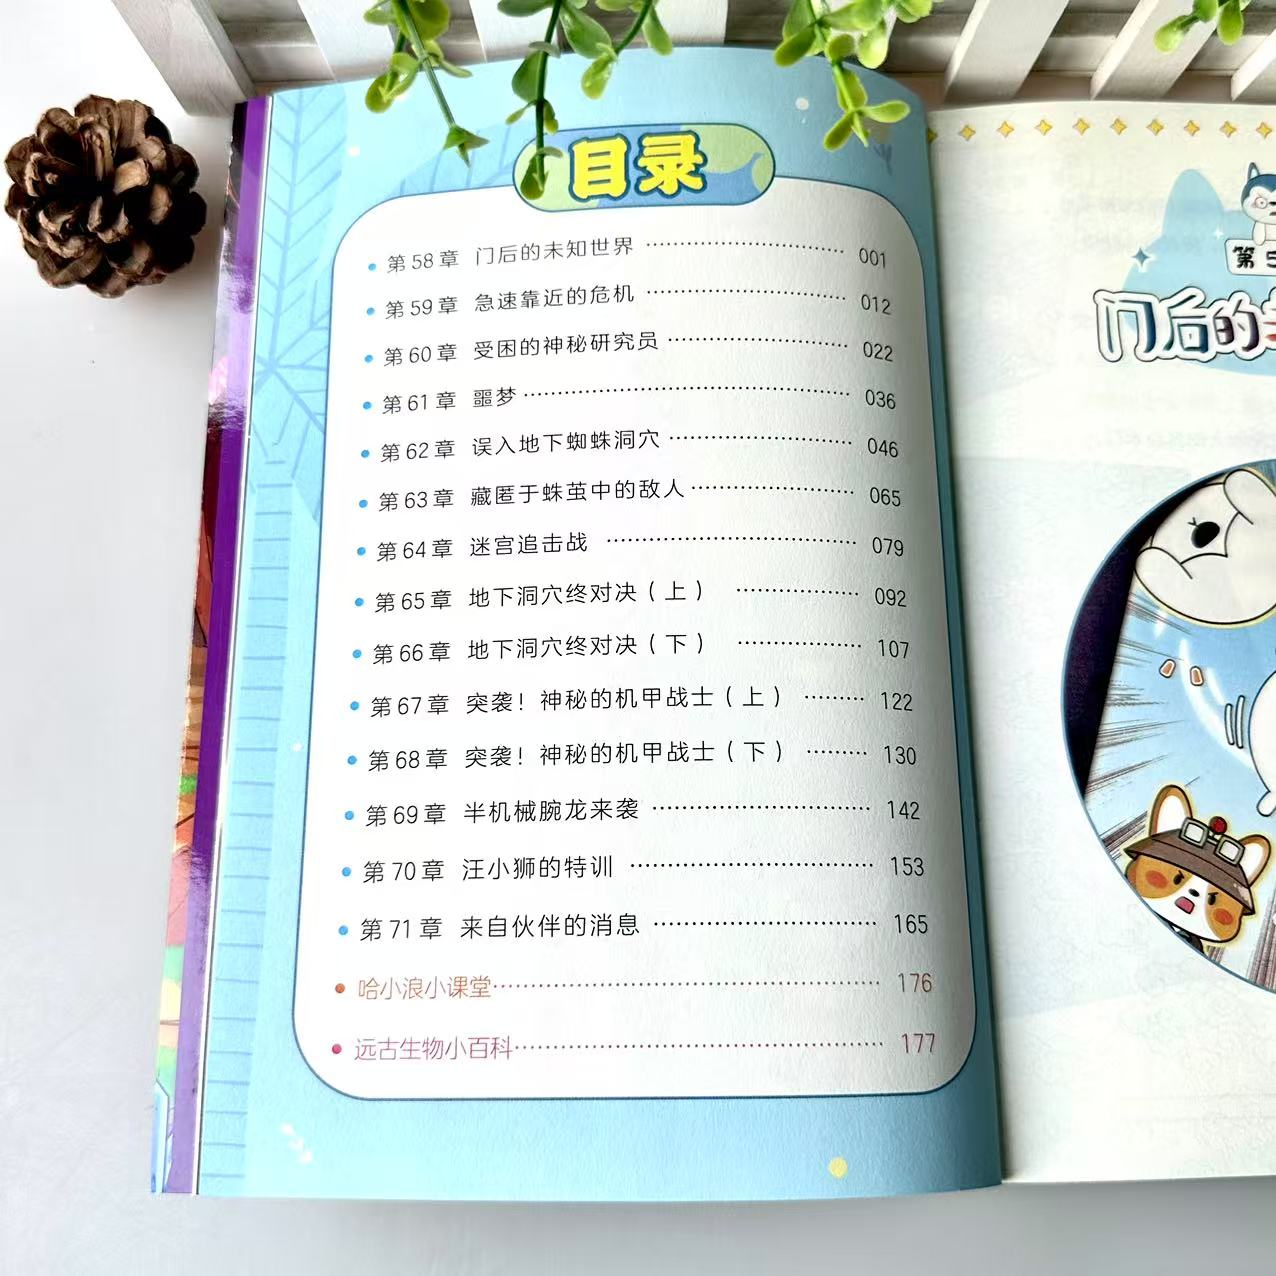 目录
第58章 门后的未知世界 ………………………… 001
第59章 急速靠近的危机 ………………………… 012
第60章 受困的神秘研究员 ……………………… 022
第61章 噩梦 ………………………………………… 036
第62章 误入地下蜘蛛洞穴 ……………………… 046
第63章 藏匿于蛛茧中的敌人 …………………… 065
第64章 迷宫追击战 ……………………………… 079
第65章 地下洞穴终对决（上） ………………… 092
第66章 地下洞穴终对决（下） ………………… 107
第67章 突袭！神秘的机甲战士（上） ……… 122
第68章 突袭！神秘的机甲战士（下） ……… 130
第69章 半机械腕龙来袭 ………………………… 142
第70章 汪小狮的特训 …………………………… 153
第71章 来自伙伴的消息 ………………………… 165
哈小浪小课堂 ……………………………………… 176
远古生物小百科 …………………………………… 177
第5
门后的